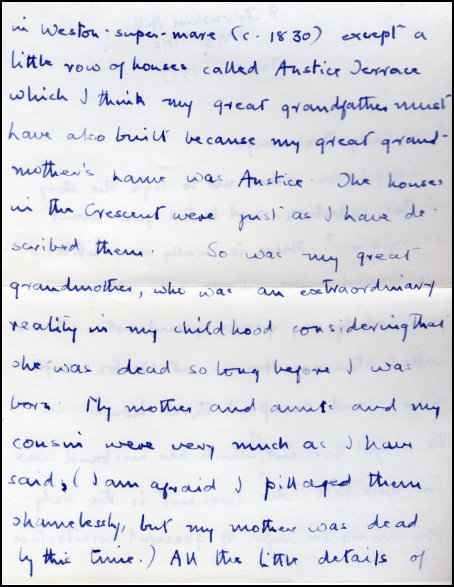 in Weston-super-mare (c. 1830) except a
little row of houses called Anstice Terrace
which I think my great grandfather must
have also built because my great grand-
mother's name was Anstice. The houses
in the Crescent were just as I have de-
scribed them. So was my great
grandmother, who was an extraordinary
reality in my childhood considering that
she was dead so long before I was
born. My mother and aunts and my
cousin were very much as I have
said; (I am afraid I pillaged them
shamelessly, but my mother was dead
by this time.) All the little details of